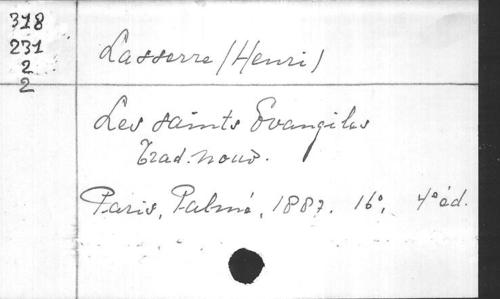 318
231
2
2
Lasserre (Henri)
Les saints Evangiles
Trad. nouv.
Paris, Palmé, 1887. 16°, 4°éd.